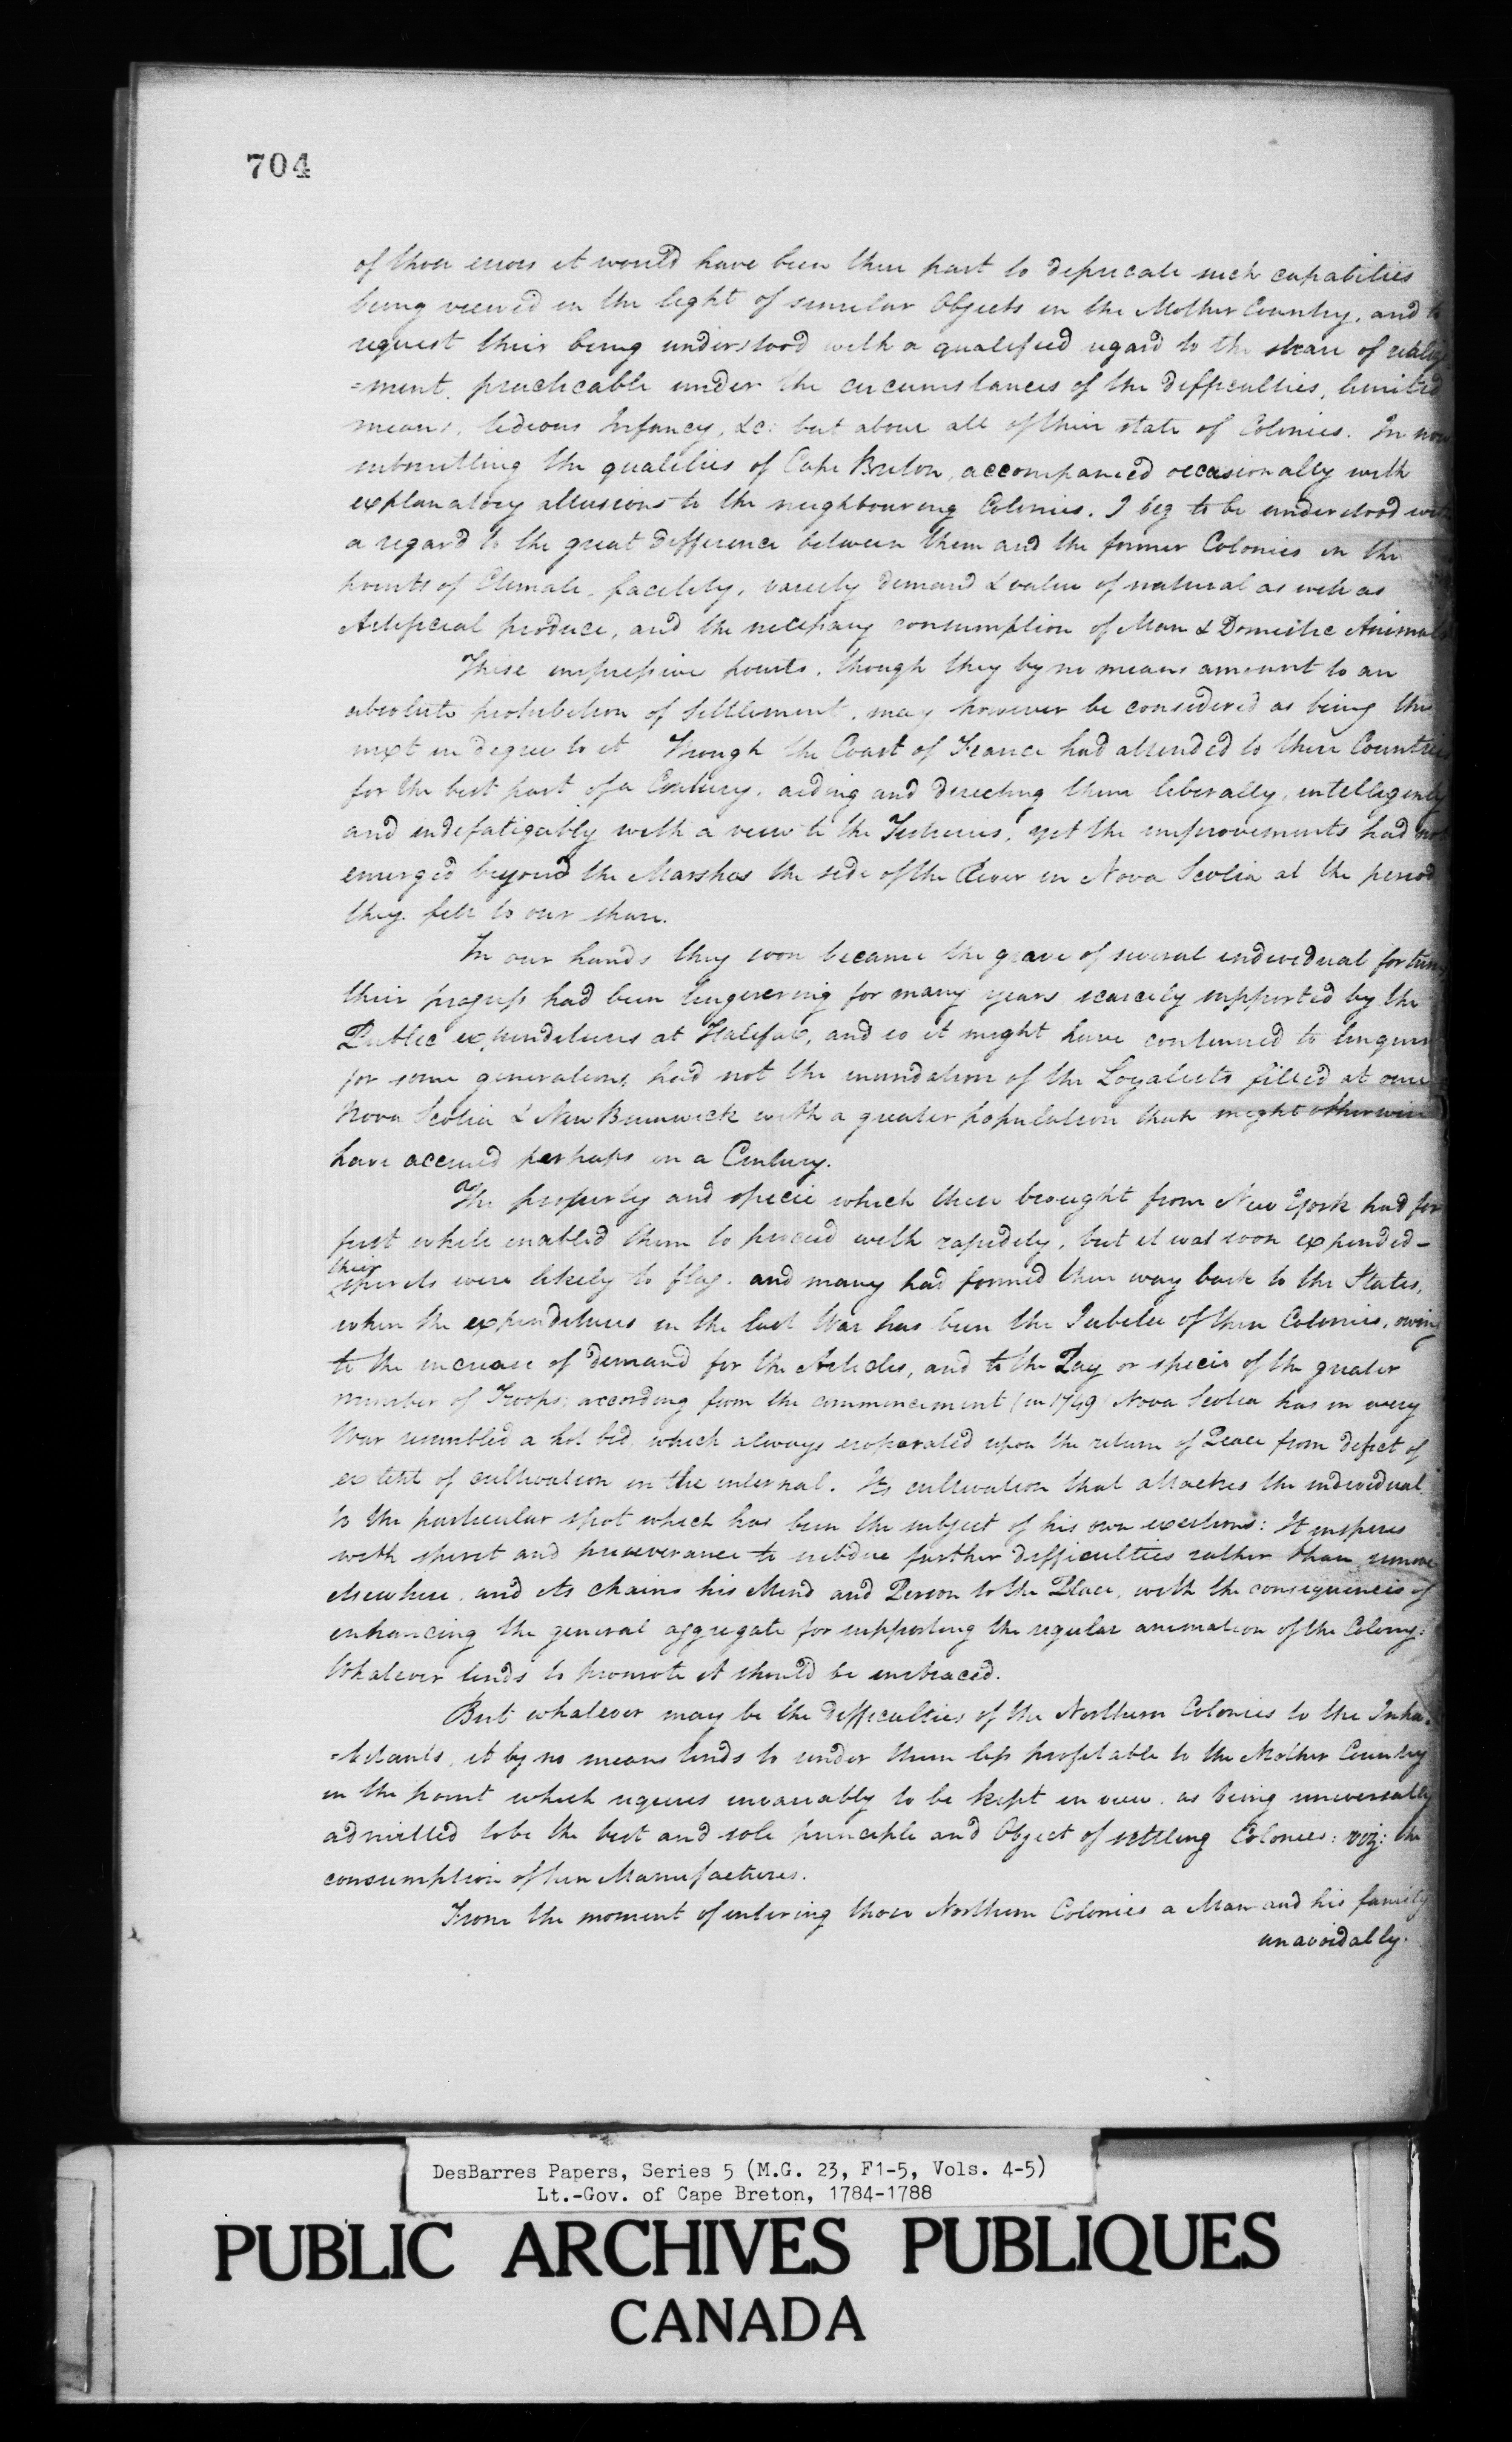 704
of those errors it would have been their part to deprecate such capabilities
being viewed in the light of similar Objects in the Mother Country, and to
request their being understood with a qualified regard to the share of
=ment, practicable under the circumstances of the difficulties, limited
means, tedious Infancy, &c: but above all of their state of Colonies. In now
submitting the qualities of Cape Breton, accompanied occasionally with
explanatory allusions to the neighbouring Colonies. I beg to be understood with
a regard to the great difference between them and the former Colonies in the
points of Climate, facility, variety demand & value of natural as well as
Artificial produce, and the necessary consumption of Man & Domestic Animals
These impressive points, though they by no means amount to an
absolute prohibition of Settlement, may however be considered as being the
next in degree to it Though the Court of France had attended to these Countries
for the best part of a Century, aiding and directing them liberally, intelligently
and indefatigably with a view to the Fisheries, yet the improvements had not
emerged beyond the Marshes the side of the River in Nova Scotia at the period
they fell to our share.
In our hands they soon became the grave of several individual fortunes
their progress had been lingering for many years scarcely supported by the
Public expenditures at Halifax, and so it might have continued to linger
for some generations, had not the inundation of the Loyalists filled at once
Nova Scotia & New Brunswick with a greater population than might otherwise
have accrued perhaps in a Century.
The property and specie which these brought from New York had for
first while enabled them to proceed with rapidity, but it was soon expended-
their
spirits were likely to flag, and many had formed their way back to the States,
when the expenditures in the last War has been the Jubilee of these Colonies, owing
to the increase of demand for the Articles, and to the Pay or specie of the greater
number of Troops; according from the commencement (in 1749) Nova Scotia has in every
War resembled a hot bed, which always evaporated upon the return of Peace from defect of
extent of cultivation in the internal. Its cultivation that attaches the individual
to the particular spot which has been the subject of his own exertions: It inspires
with spirit and perseverance to subdue further difficulties rather than remove
elsewhere, and its chains his Mind and Person to the Place, with the consequences of
enhancing the general aggregate for supporting the regular animation of the Colony:
Whatever tends to promote it should be embraced.
But whatever may be the difficulties of the Northern Colonies to the Inha-
=bitants, it by no means tends to render them less profitable to the Mother Country
in the point which requires invariably to be kept in view, as being universally
admitted to be the best and sole principle and Object of settling Colonies: viz: the
consumption of her Manufactures.
From the moment of entering those Northern Colonies a Man and his family
unavoidably.
DesBarres Papers, Series 5 (M.G. 23, F1-5, Vols. 4-5)
Lt.-Gov. of Cape Breton, 1784-1788
PUBLIC ARCHIVES PUBLIQUES
CANADA